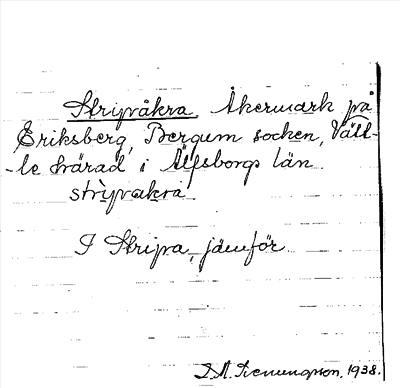 Stripvåkra, Åkermark på
Eriksberg, Bergum socken, Vätt-
-le härad i Älfsborgs län.
stripvakra.
I Stripa, jämför
1938.